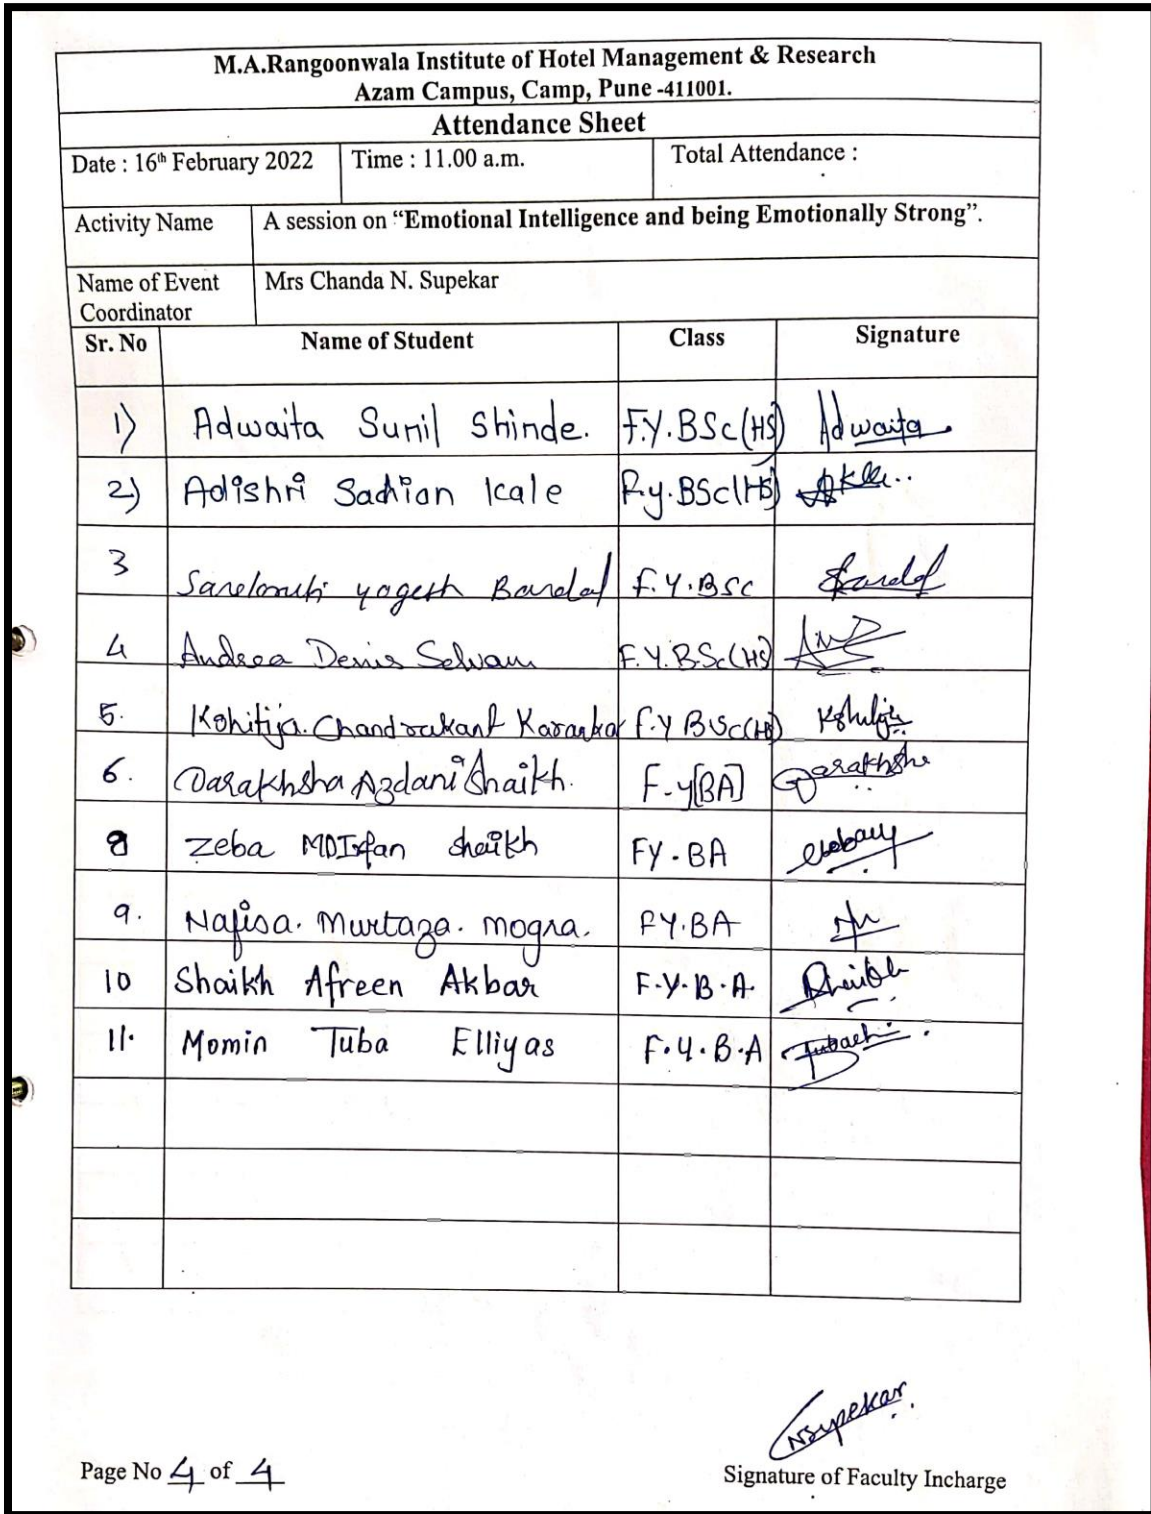 M.A.Rangoonwala Institute of Hotel Management & Research
Azam Campus, Camp, Pune -411001.
Attendance Sheet
Date : 16th February 2022 Time : 11.00 a.m. Total Attendance :
Activity Name A session on “Emotional Intelligence and being Emotionally Strong”.
Name of Event Coordinator Mrs Chanda N. Supekar
Sr. No Name of Student Class Signature
1) Adwaita Sunil Shinde. F.Y.BSc(HS) Adwaita
2) Adishri Kale F.y.BSc(HS)
3 yogesh F.Y.BSC
4 Andrea Denis Selvam F.Y.B.Sc(HS)
5. Kshitija. Chandrakant F.Y BSc(HS)
6. Darakhsha Azdani Shaikh. F-y[BA] Darakhsha
8 Zeba MDIrfan shaikh FY.BA
9. Nafisa. Murtaza. mogra. FY.BA
10 Shaikh Afreen Akbar F.Y.B.A. Shaikh
11. Momin Tuba Elliyas F.Y.B.A
Nsupekar.
Page No 4 of 4 Signature of Faculty Incharge